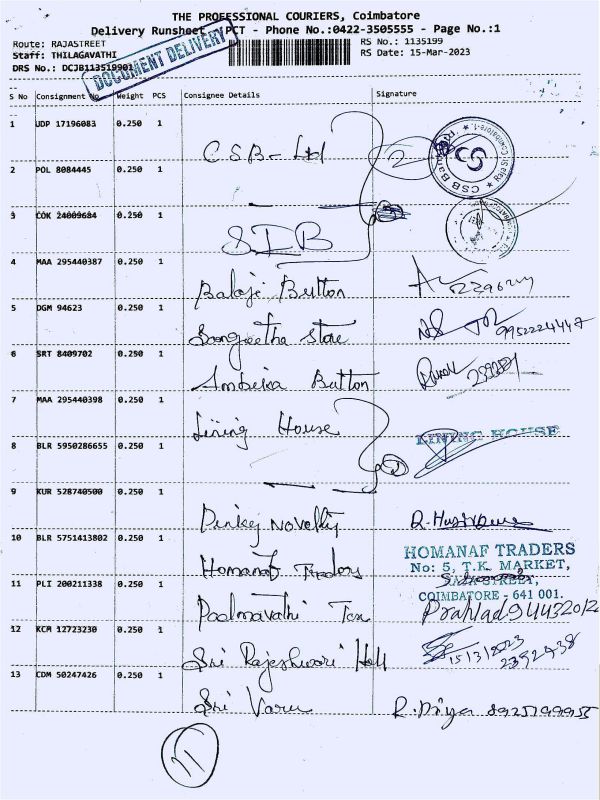 THE PROFESSIONAL COURIERS, Coimbatore
Delivery Runsheet PCT - Phone No.:0422-3505555 - Page No.:1
Route: RAJASTREET
RS No.: 1135199
Staff: THILAGAVATHI
RS Date: 15-Mar-2023
DRS No.: DCJB113519901
DOCUMENT DELIVERY
S No Consignment No. Weight PCS Consignee Details Signature
1 UDP 17196083 0.250 1 CSB - Ltd 2
CSB Bank
2 POL 8084445 0.250 1
3 COK 24009684 0.250 1 SIB
4 MAA 295440387 0.250 1 Balaji Button
5 DGM 94623 0.250 1 Sangeetha Store 9952224447
6 SRT 8409702 0.250 1 Ambika Button
7 MAA 295440398 0.250 1 Lining House LINING HOUSE
8 BLR 5950286655 0.250 1
9 KUR 528740500 0.250 1 Pinkej Novelty
10 BLR 5751413802 0.250 1 Homanaf Traders
HOMANAF TRADERS
No: 5, T.K. MARKET,
STREET,
COIMBATORE - 641 001.
11 PLI 200211338 0.250 1 Padmavathi Tex Prahlad
12 KCM 12723230 0.250 1 Sri Rajeshwari Hall 15/3/2023 2392438
13 CDM 50247426 0.250 1 Sri Varu R. Priya 8925799955
11